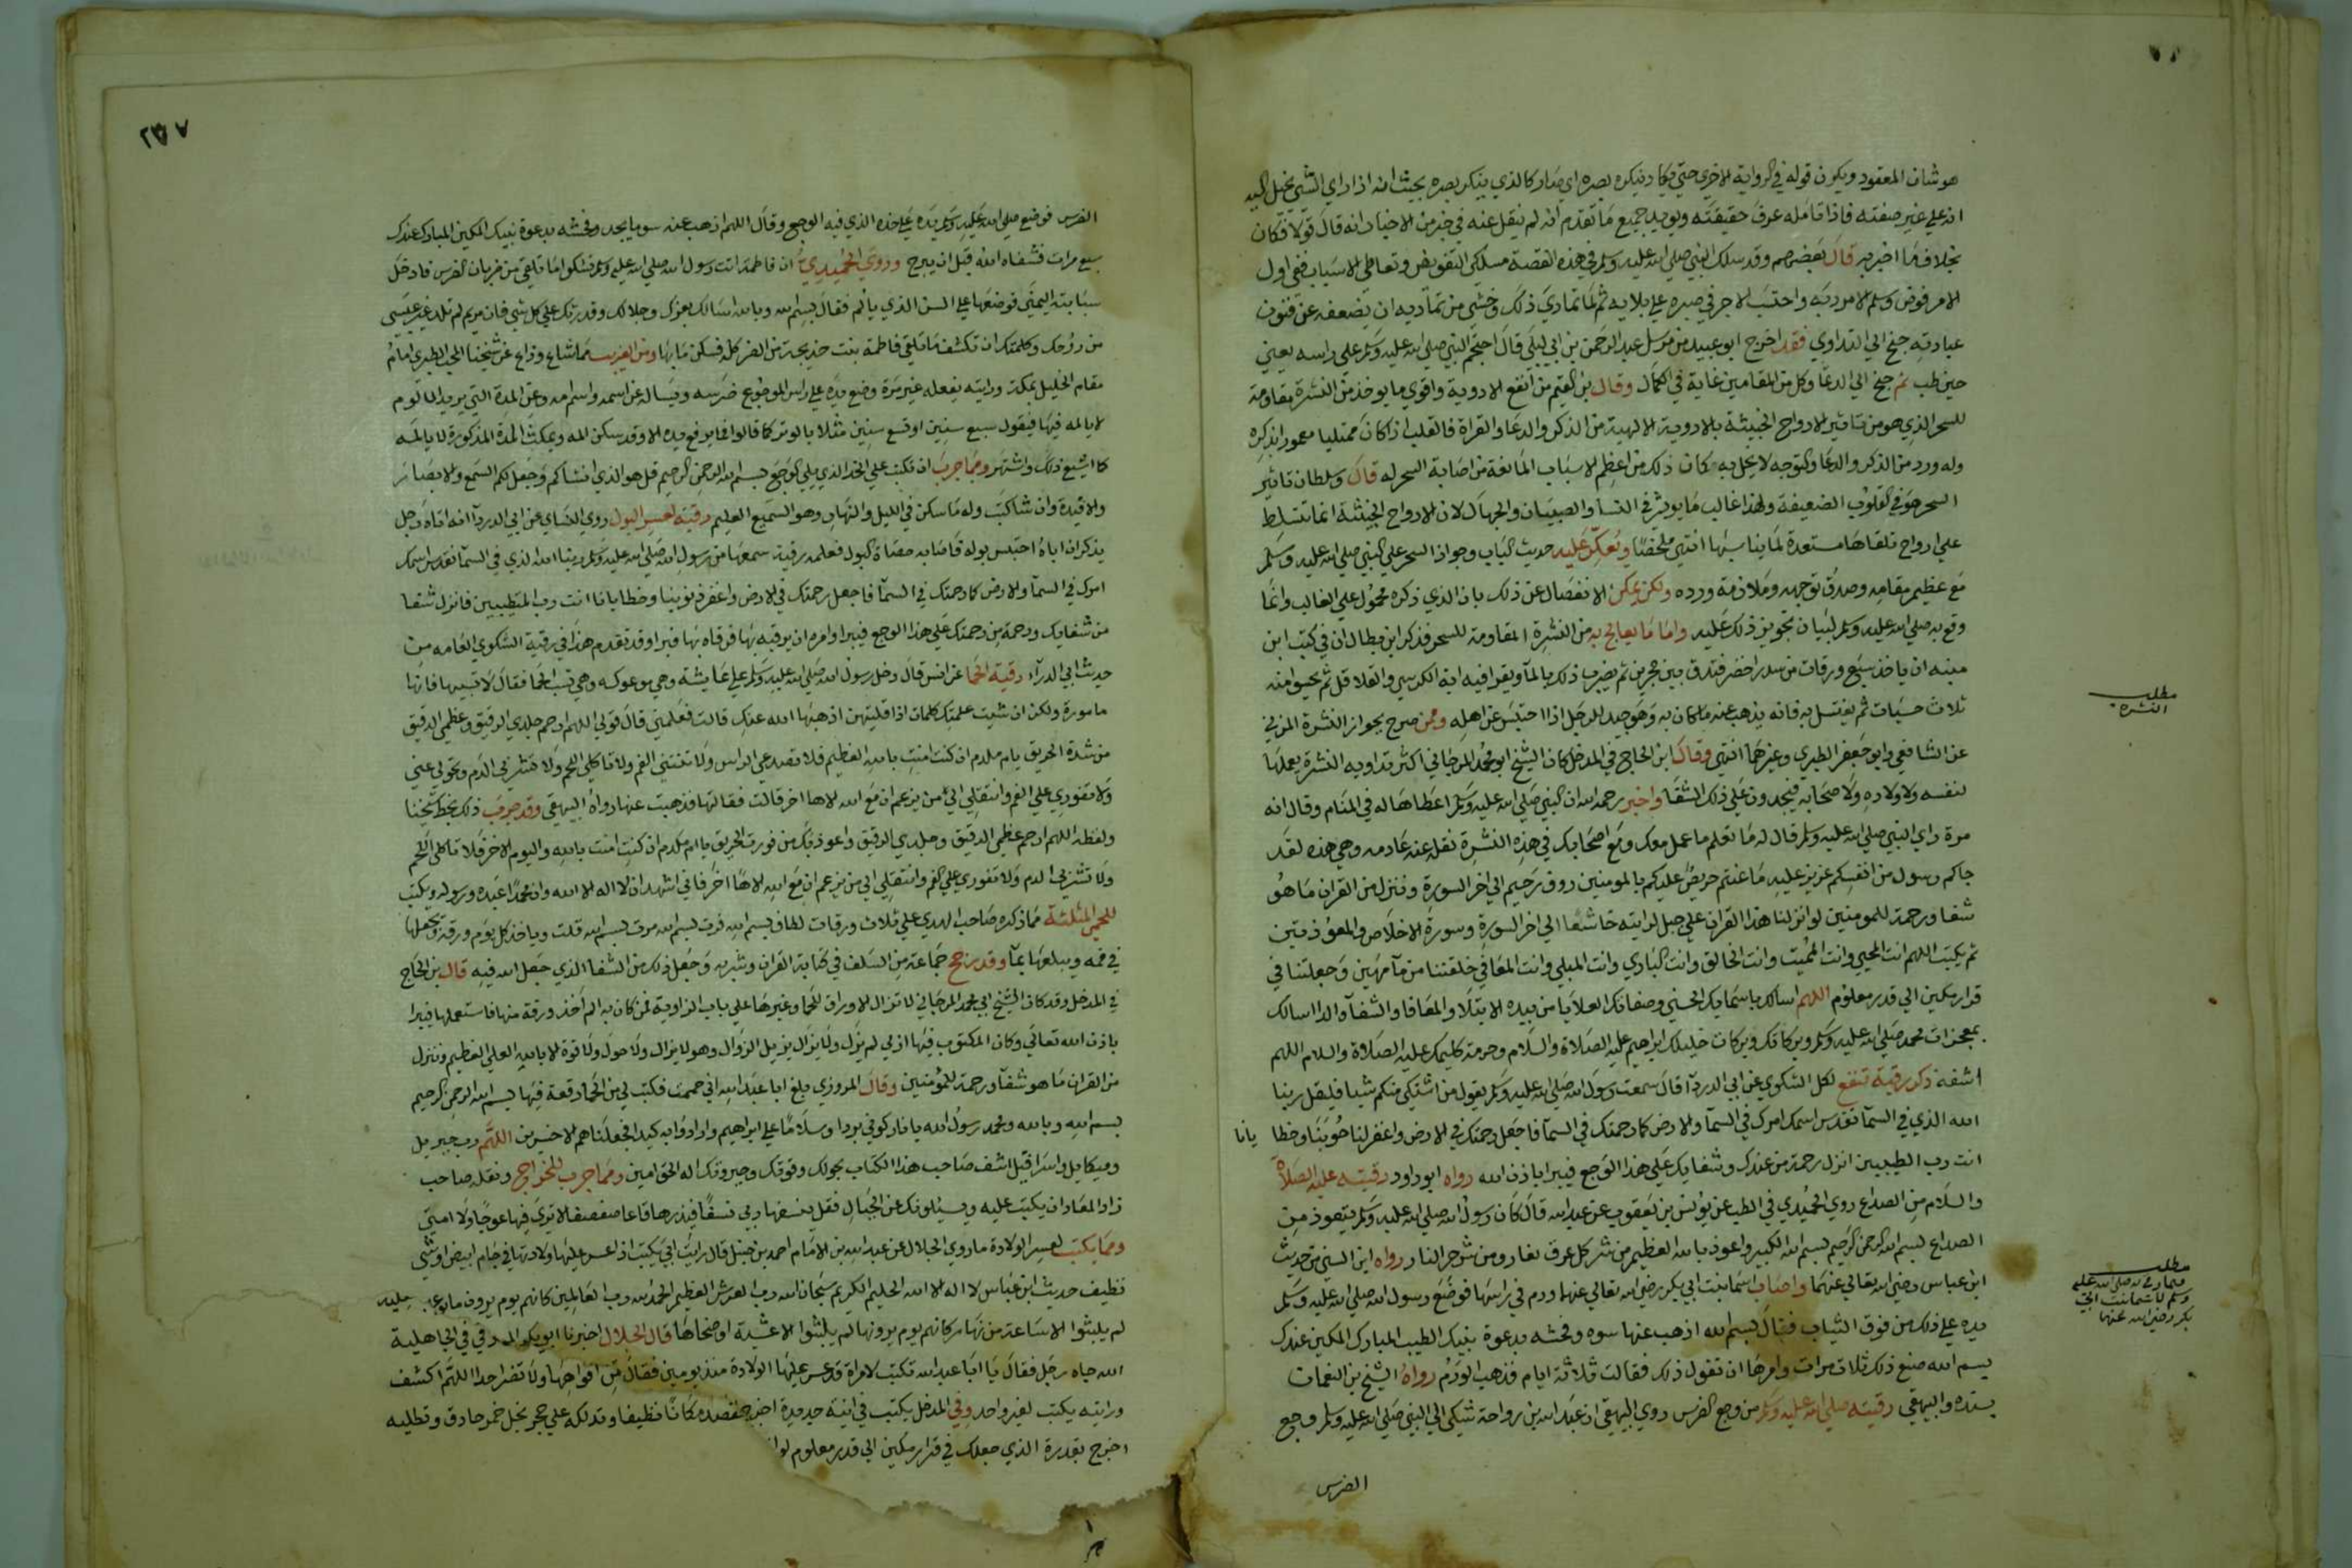 هو شان المعقود ويكون قوله في الرواية الاخري حتي كاد ينكر بصره اي صار كالذي ينكر بصره بحيث انه اذا راي الشي يخيل اليه
انه علي غير صفته فاذا تامله عرف حقيقته ويويد جميع ما تقدم انه لم ينقل عنه في خبر من الاخبار انه قال قولا فكان
بخلاف ما اخبر به قال بعضهم وقد سلك النبي صلي الله عليه وسلم في هذه القصة مسلكي التفويض وتعاطي الاسباب ففي اول
الامر فوض وسلم الامر ربه واحتسب الاجر في صبره علي بلايه ثم لما تمادي ذلك وخشي من تماديه ان يضعفه عن فنون
عبادته جنح الي التداوي فقد اخرج ابو عبيد من مرسل عبد الرحمن بن ابي ليلي قال احتجم النبي صلي الله عليه وسلم علي راسه يعني
حين طب ثم جنح الي الدعا وكل من المقامين غاية في الكمال وقال بن القيم من انفع الادوية واقوي ما يوخذ من النشرة مقاومة
للسحر الذي هو من تاثير الارواح الخبيثة بالادوية الالهية من الذكر والدعا والقراة فالقلب اذا كان ممتليا معمورا بذكره
وله ورد من الذكر والدعا والتوجه لا يخل به كان ذلك من اعظم الاسباب المانعة من اصابة السحر له قال وسلطان تاثير
السحر هو في القلوب الضعيفة ولهذا غالب ما يوثر في النسا والصبيان والجهال لان الارواح الخبيثة انما تتسلط
علي ارواح تلقاها مستعدة لما يناسبها انتهي ملخصا ويعكر عليه حديث الباب وجواز السحر علي النبي صلي الله عليه وسلم
مع عظيم مقامه وصدق توجهه وملازمة ورده ولكن يمكن الانفصال عن ذلك بان الذي ذكره محمول علي الغالب وانما
وقع به صلي الله عليه وسلم لبيان تجويز ذلك عليه واما ما يعالج به من النشرة المقاومة للسحر فذكر ابن بطال ان في كتب ابن
منبه ان ياخذ سبع ورقات من سدر اخضر فتدق بين حجرين ثم يضرب ذلك بالما ويقرا فيه اية الكرسي والقلاقل ثم يحسو امنه
ثلاث حسيات ثم يغتسل به فانه يذهب عنه ما كان به وهو جيد للرجل اذا احتبس عن اهله وممن صرح بجواز النشرة المزني
عن الشافعي وابو جعفر الطبري وغيرهما انتهي وقال ابن الحاج في المدخل كان الشيخ ابو محمد المرجاني اكثر تداويه النشرة يعملها
لنفسه ولاولاده ولاصحابه فيجدون علي ذلك الشفا واخبر رحمه الله ان النبي صلي الله عليه وسلم اعطاها له في المنام وقال انه
مرة راي النبي صلي الله عليه وسلم قال له ما تعلم ما عمل معك ومع اصحابك في هذه النشرة نقله عنه خادمه وهي هذه لقد
جاكم رسول من انفسكم عزيز عليه ما عنتم حريص عليكم بالمومنين روف رحيم الي اخر السورة وننزل من القران ما هو
شفا ورحمة للمومنين لو انزلنا هذا القران علي جبل لرايته خاشعا الي اخر السورة وسورة الاخلاص والمعوذتين
ثم يكتب اللهم انت المحيي وانت المميت وانت الخالق وانت الباري وانت المبلي وانت المعافي خلقتنا من ما مهين وجعلتنا في
قرار مكين الي قدر معلوم اللهم اسالك باسمايك الحسني وصفاتك العلا يا من بيده الابتلا والمعافا والشفا والدا اسالك
بمعجزات محمد صلي الله عليه وسلم وبركاتك وبركات خليلك ابراهيم عليه الصلاة والسلام وحرمة كليمك عليه الصلاة والسلام اللهم
اشفه ذكر رقية تنفع لكل الشكوي عن ابي الدردآ قال سمعت رسول الله صلي الله عليه وسلم يقول من اشتكي منكم شيا فليقل ربنا
الله الذي في السمآ تقدس اسمك امرك في السمآ والارض كما رحمتك في السمآ فاجعل رحمتك في الارض واغفر لنا حوبنا وخطا يانا
انت رب الطيبين انزل رحمة من عندك وشفا من شفايك علي هذا الوجع فيبرا باذن الله رواه ابو داود رقيته عليه الصلاة
والسلام من الصداع روي الحميدي في الطب عن يونس بن يعقوب عن عبد الله قال كان رسول الله صلي الله عليه وسلم يتعوذ من
الصداع بسم الله الرحمن الرحيم بسم الله الكبير واعوذ بالله العظيم من شر كل عرق نعار ومن شر حر النار رواه ابن السني من حديث
ابن عباس رضي الله تعالي عنهما واصاب اسما بنت ابي بكر رضي الله تعالي عنهما ورم في راسها فوضع رسول الله صلي الله عليه وسلم
يده علي ذلك من فوق الثياب فقال بسم الله اذهب عنها سوه وفحشه بدعوة نبيك الطيب المبارك المكين عندك
بسم الله صنع ذلك ثلاث مرات وامرها ان تقول ذلك فقالت ثلاثة ايام فذهب الورم رواه الشيخ بن النعمان
بسنده والبيهقي رقيته صلي الله عليه وسلم من وجع الضرس روي البيهقي ان عبد الله بن رواحة شكي الي النبي صلي الله عليه وسلم وجع
الضرس
مطلب
النشرة
مطلب
صلي الله عليه
وسلم لاسما بنت ابي
بكر رضي الله عنها
٢٣٧
الضرس فوضع صلي الله عليه وسلم يده علي خده الذي فيه الوجع وقال اللهم اذهب عنه سو ما يجد وفحشه بدعوة نبيك المكين المبارك عندك
سبع مرات فشفاه الله قبل ان يبرح وروي الحميدي ان فاطمة اتت رسول الله صلي الله عليه وسلم تشكوا ما تلقي من ضربان الضرس فادخل
سبابته اليمني فوضعها علي السن الذي يالم فقال بسم الله وبالله اسالك بعزك وجلالك وقدرتك علي كل شي فان مريم لم تلد غير عيسي
من روحك وكلمتك ان تكشف ما تلقي فاطمة بنت خديجة من الضر كله فسكن ما بها ومن الغريب ما شاع وذاع عن شيخنا المحب الطبري امام
مقام الخليل بمكة ورايته يفعله غير مرة وضع يده علي راس الموجوع ضرسه ويساله عن اسمه واسم امه وعن المدة التي يريد ان لا يالم
لا يالمه فيها فيقول سبع سنين او تسع سنين مثلا بالوتر كما قالوا فما يرفع يده الا وقد سكن المه ويمكث المدة المذكورة لا يالمه
كما اشيع ذلك واشتهر ومما جرب ان يكتب علي الخد الذي يلي الوجع بسم الله الرحمن الرحيم قل هو الذي انشاكم وجعل لكم السمع والابصار
والافيدة وان شا كتب وله ما سكن في الليل والنهار وهو السميع العليم رقية لعسر البول روي النساي عن ابي الدردآ انه اتاه رجل
يذكر ان اباه احتبس بوله فاصابه حصاة البول فعلمه رقية سمعها من رسول الله صلي الله عليه وسلم ربنا الله الذي في السمآ تقدس اسمك
امرك في السمآ والارض كما رحمتك في السمآ فاجعل رحمتك في الارض واغفر ذنوبنا وخطايانا انت رب المتطيبين فانزل شفا
من شفايك ورحمة من رحمتك علي هذا الوجع فيبرا وامره ان يرقيه بها فرقاه بها فبرا وقد تقدم هذا في رقية الشكوي العامه من
حديث ابي الدردآ رقية الحما عن انس قال دخل رسول الله صلي الله عليه وسلم علي عايشة وهي موعوكه وهي تسب الحما فقال لا تسبيها فانها
مامورة ولكن ان شيت علمتك كلمات اذا قلتيهن اذهبها الله عنك قالت فعلمني قال قولي اللهم ارحم جلدي الرقيق وعظمي الدقيق
من شدة الحريق يا ام ملدم ان كنت امنت بالله العظيم فلا تصدعي الراس ولا تنتني الفم ولا تاكلي اللحم ولا تشربي الدم وتحولي عني
ولا تفوري علي الفم وانتقلي الي من يزعم ان مع الله الاها اخر قالت فقالتها فذهبت عنها رواه البيهقي وقد جرب ذلك بخط شيخنا
ولفظه اللهم ارحم عظمي الدقيق وجلدي الرقيق واعوذ بك من فورة الحريق يا ام ملدم ان كنت امنت بالله واليوم الاخر فلا تاكلي اللحم
ولا تشربي الدم ولا تفوري علي الفم وانتقلي الي من يزعم ان مع الله الاها اخر فاني اشهد ان لا اله الا الله وان محمدا عبده ورسوله ويكتب
للحمي المثلثة مما ذكره صاحب الهدي علي ثلاث ورقات لطاف بسم الله فرت بسم الله مرت بسم الله قلت وياخذ كل يوم ورقة ويجعلها
في فمه ويبلعها بمآ وقد رخص جماعة من السلف في كتابة القران وشربه وجعل ذلك من الشفا الذي جعل الله فيه قال بن الحاج
في المدخل وقد كان الشيخ ابي محمد المرجاني لا تزال الاوراق للحما وغيرها علي باب الزاوية فمن كان به الم اخذ ورقة منها فاستعملها فيبرا
باذن الله تعالي وكان المكتوب فيها ازلي لم يزل ولا يزال يزيل الزوال وهو لا يزال ولا حول ولا قوة الا بالله العلي العظيم وننزل
من القران ما هو شفآ ورحمة للمؤمنين وقال المروزي بلغ ابا عبد الله اني حممت فكتب لي من الحما رقعة فيها بسم الله الرحمن الرحيم
بسم الله وبالله ومحمد رسول الله يا نار كوني بردا وسلاما علي ابراهيم وارادوا به كيدا فجعلناهم الاخسرين اللهم رب جبريل
وميكايل واسرافيل اشف صاحب هذا الكتاب بحولك وقوتك وجبروتك اله الحق امين ومما جرب للخراج ونقله صاحب
زاد المعاد ان يكتب عليه ويسئلونك عن الجبال فقل ينسفها ربي نسفا فيذرها قاعا صفصفا لا تري فيها عوجا ولا امتا
ومما يكتب لعسر الولادة ما روي الخلال عن عبد الله بن الامام احمد بن حنبل قال رايت ابي يكتب اذا عسر عليها ولادتها في جام ابيض او شي
نظيف حديث ابن عباس لا اله الا الله الحليم الكريم سبحان الله رب العرش العظيم الحمد لله رب العالمين كانهم يوم يرون ما يوعدون
لم يلبثوا الا ساعة من نهار كانهم يوم يرونها لم يلبثوا الا عشية او ضحاها قال الخلال اخبرنا ابو بكر المروزي
الله جاه رجل فقال يا ابا عبد الله تكتب لامراة قد عسر عليها الولادة منذ يومين فقال
ورايته يكتب لغير واحد وفي المدخل يكتب في انية جديدة اخرج
اخرج بقدرة الذي جعلك في قرار مكين الي قدر معلوم